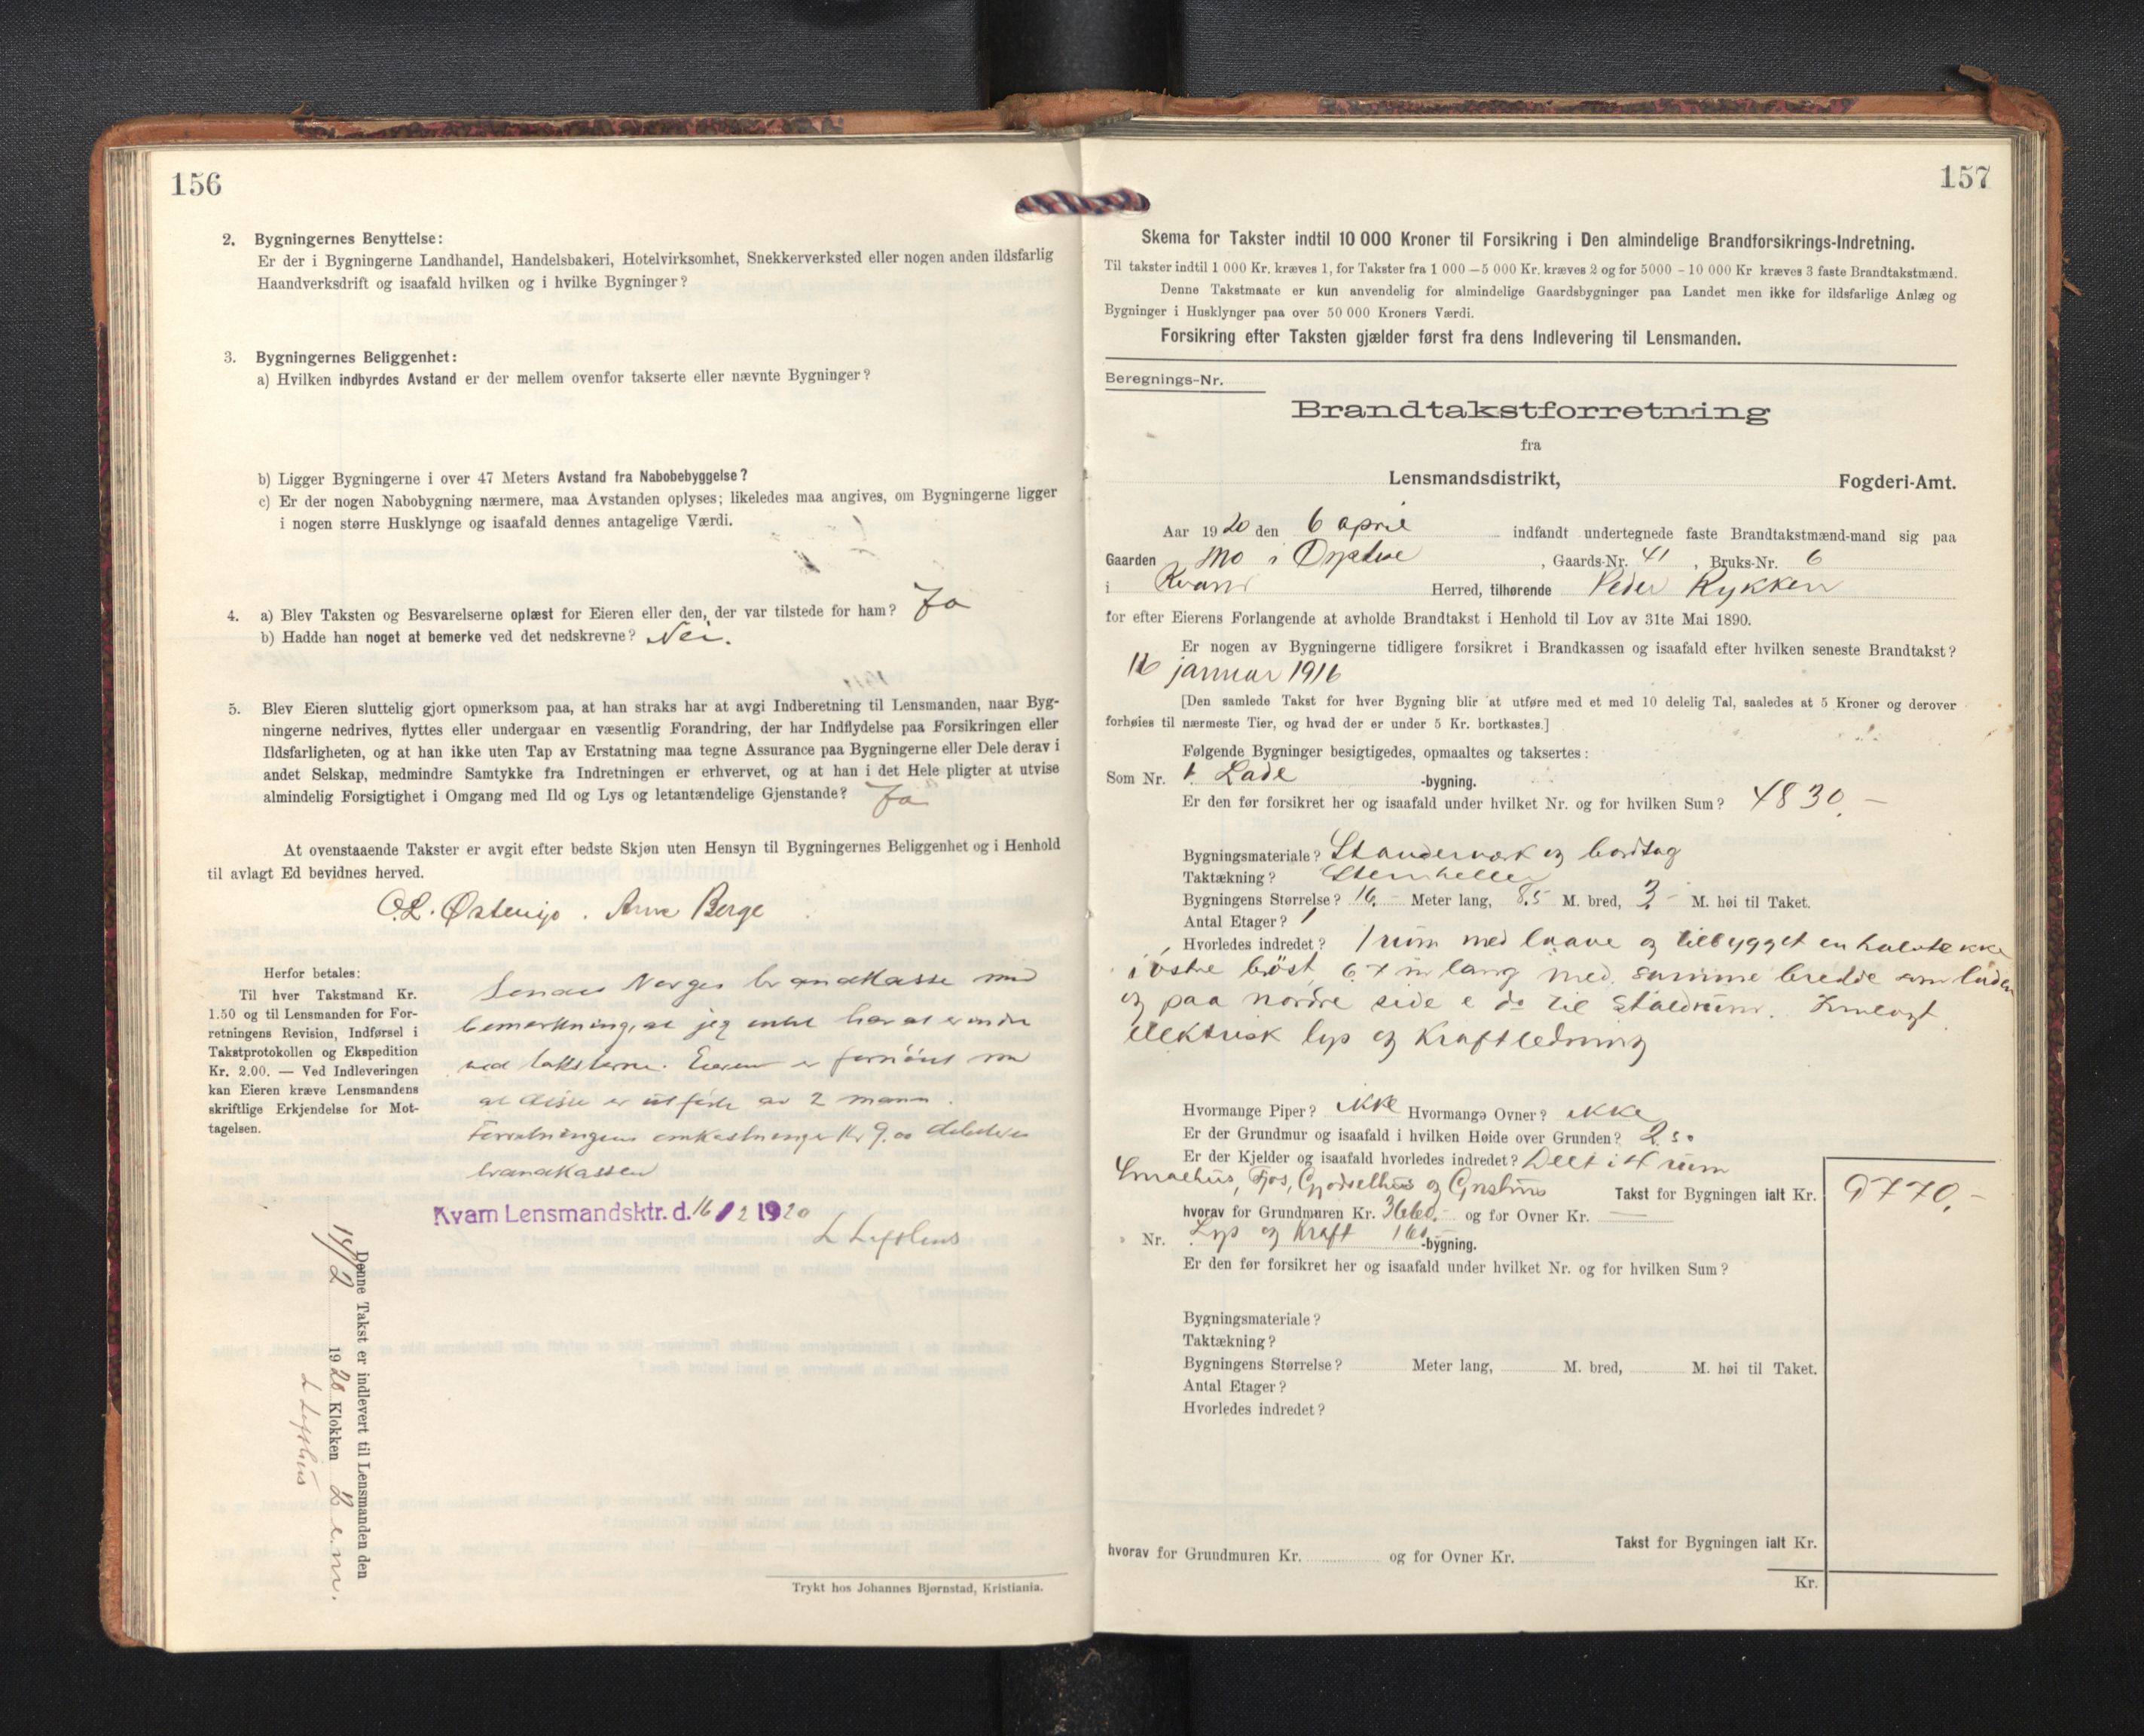 156
2. Bygningernes Benyttelse:
Er der i Bygningerne Landhandel, Handelsbakeri, Hotelvirksomhet, Snekkerverksted eller nogen anden ildsfarlig
Haandverksdrift og isaafald hvilken og i hvilke Bygninger?
3. Bygningernes Beliggenhet:
a) Hvilken indbyrdes Avstand er der mellem ovenfor takserte eller nævnte Bygninger?
b) Ligger Bygningerne i over 47 Meters Avstand fra Nabobebyggelse?
c) Er der nogen Nabobygning nærmere, maa Avstanden oplyses; likeledes maa angives, om Bygningerne ligger
i nogen større Husklynge og isaafald dennes antagelige Værdi.
4. a) Blev Taksten og Besvarelserne oplæst for Eieren eller den, der var tilstede for ham? Ja
b) Hadde han noget at bemerke ved det nedskrevne? Nei.
5. Blev Eieren sluttelig gjort opmerksom paa, at han straks har at avgi Indberetning til Lensmanden, naar Byg-
ningerne nedrives, flyttes eller undergaar en væsentlig Forandring, der har Indflydelse paa Forsikringen eller
Ildsfarligheten, og at han ikke uten Tap av Erstatning maa tegne Assurance paa Bygningerne eller Dele derav i
andet Selskap, medmindre Samtykke fra Indretningen er erhvervet, og at han i det Hele pligter at utvise
almindelig Forsigtighet i Omgang med Ild og Lys og letantændelige Gjenstande? Ja
At ovenstaaende Takster er avgit efter bedste Skjøn uten Hensyn til Bygningernes Beliggenhet og i Henhold
til avlagt Ed bevidnes herved.
O. L. Østensjo. Arne Berge
Herfor betales:
Til hver Takstmand Kr.
1.50 og til Lensmanden for For-
retningens Revision, Indførsel i
Takstprotokollen og Ekspedition
Kr. 2.00. — Ved Indleveringen
kan Eieren kræve Lensmandens
skriftlige Erkjendelse for Mot-
tagelsen.
Sendes Norges brandkasse med
bemerkning, at jeg intet har at erindre
ved taksterne. Eieren er fornöiet med
at disse er utförte av 2 mann.
Forretningens omkostninger Kr 9.00 debiteres
brandkassen
Kvam Lensmandsktr. d. 16/2 1920
L Lofthus
Denne Takst er indlevert til Lensmanden den
14/2 1920 Klokken 2 e.m.
L Lofthus
Trykt hos Johannes Bjørnstad, Kristiania.
157
Skema for Takster indtil 10 000 Kroner til Forsikring i Den almindelige Brandforsikrings-Indretning.
Til takster indtil 1 000 Kr. kræves 1, for Takster fra 1 000 — 5 000 Kr. kræves 2 og for 5000 - 10 000 Kr kræves 3 faste Brandtakstmænd.
Denne Takstmaate er kun anvendelig for almindelige Gaardsbygninger paa Landet men ikke for ildsfarlige Anlæg og
Bygninger i Husklynger paa over 50 000 Kroners Værdi.
Forsikring efter Taksten gjælder først fra dens Indlevering til Lensmanden.
Beregnings-Nr.
Brandtakstforretning
fra
Lensmandsdistrikt, Fogderi-Amt.
Aar 1920 den 6 april indfandt undertegnede faste Brandtakstmænd-mand sig paa
Gaarden Mo i , Gaards-Nr. 41 , Bruks-Nr. 6
i Kvam Herred, tilhørende Peder Rykken
for efter Eierens Forlangende at avholde Brandtakst i Henhold til Lov av 31te Mai 1890.
Er nogen av Bygningerne tidligere forsikret i Brandkassen og isaafald efter hvilken seneste Brandtakst?
januar 1916
[Den samlede Takst for hver Bygning blir at utføre med et med 10 delelig Tal, saaledes at 5 Kroner og derover
forhøies til nærmeste Tier, og hvad der er under 5 Kr. bortkastes.]
Følgende Bygninger besigtigedes, opmaaltes og taksertes:
Som Nr. 1. Lade -bygning.
Er den før forsikret her og isaafald under hvilket Nr. og for hvilken Sum? 4830.—
Bygningsmateriale? Standerværk og bordtag
Taktækning? Stenheller
Bygningens Størrelse? 16.- Meter lang, 8.5 M. bred, 3.- M. høi til Taket.
Antal Etager? 1
Hvorledes indredet? 1 rum med laave og tilbygget en halvtekke
i östre bröst 6.7 m lang med samme bredde som laden
og paa nordre side e do til Staldrum. Indlagt
Elektrisk lys og Kraftledning
Hvormange Piper? ikke Hvormange Ovner? ikke
Er der Grundmur og isaafald i hvilken Høide over Grunden? 2.50
Er der Kjelder og isaafald hvorledes indredet? Delt i 4 rum
Smaehus, Fjos, Gjødselhus og Takst for Bygningen ialt Kr. 9770.-
hvorav for Grundmuren Kr. 3660.- og for Ovner Kr. —
Nr. Lys og Kraft 160 -bygning.
Er den før forsikret her og isaafald under hvilket Nr. og for hvilken Sum?
Bygningsmateriale?
Taktækning?
Bygningens Størrelse? Meter lang, M. bred, M. høi til Taket.
Antal Etager?
Hvorledes indredet?
Takst for Bygningen ialt Kr.
hvorav for Grundmuren Kr. og for Ovner Kr.
Kr.